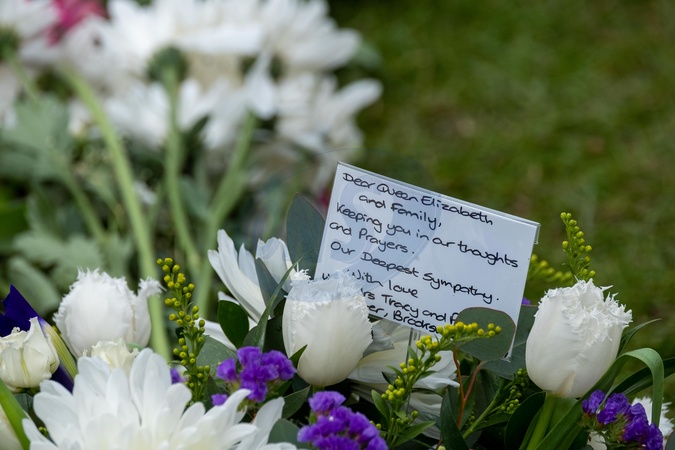 Dear Queen Elizabeth
and Family,
Keeping you in our thoughts
and Prayers.
Our Deepest Sympathy.
With love
Tracy and
Brooks